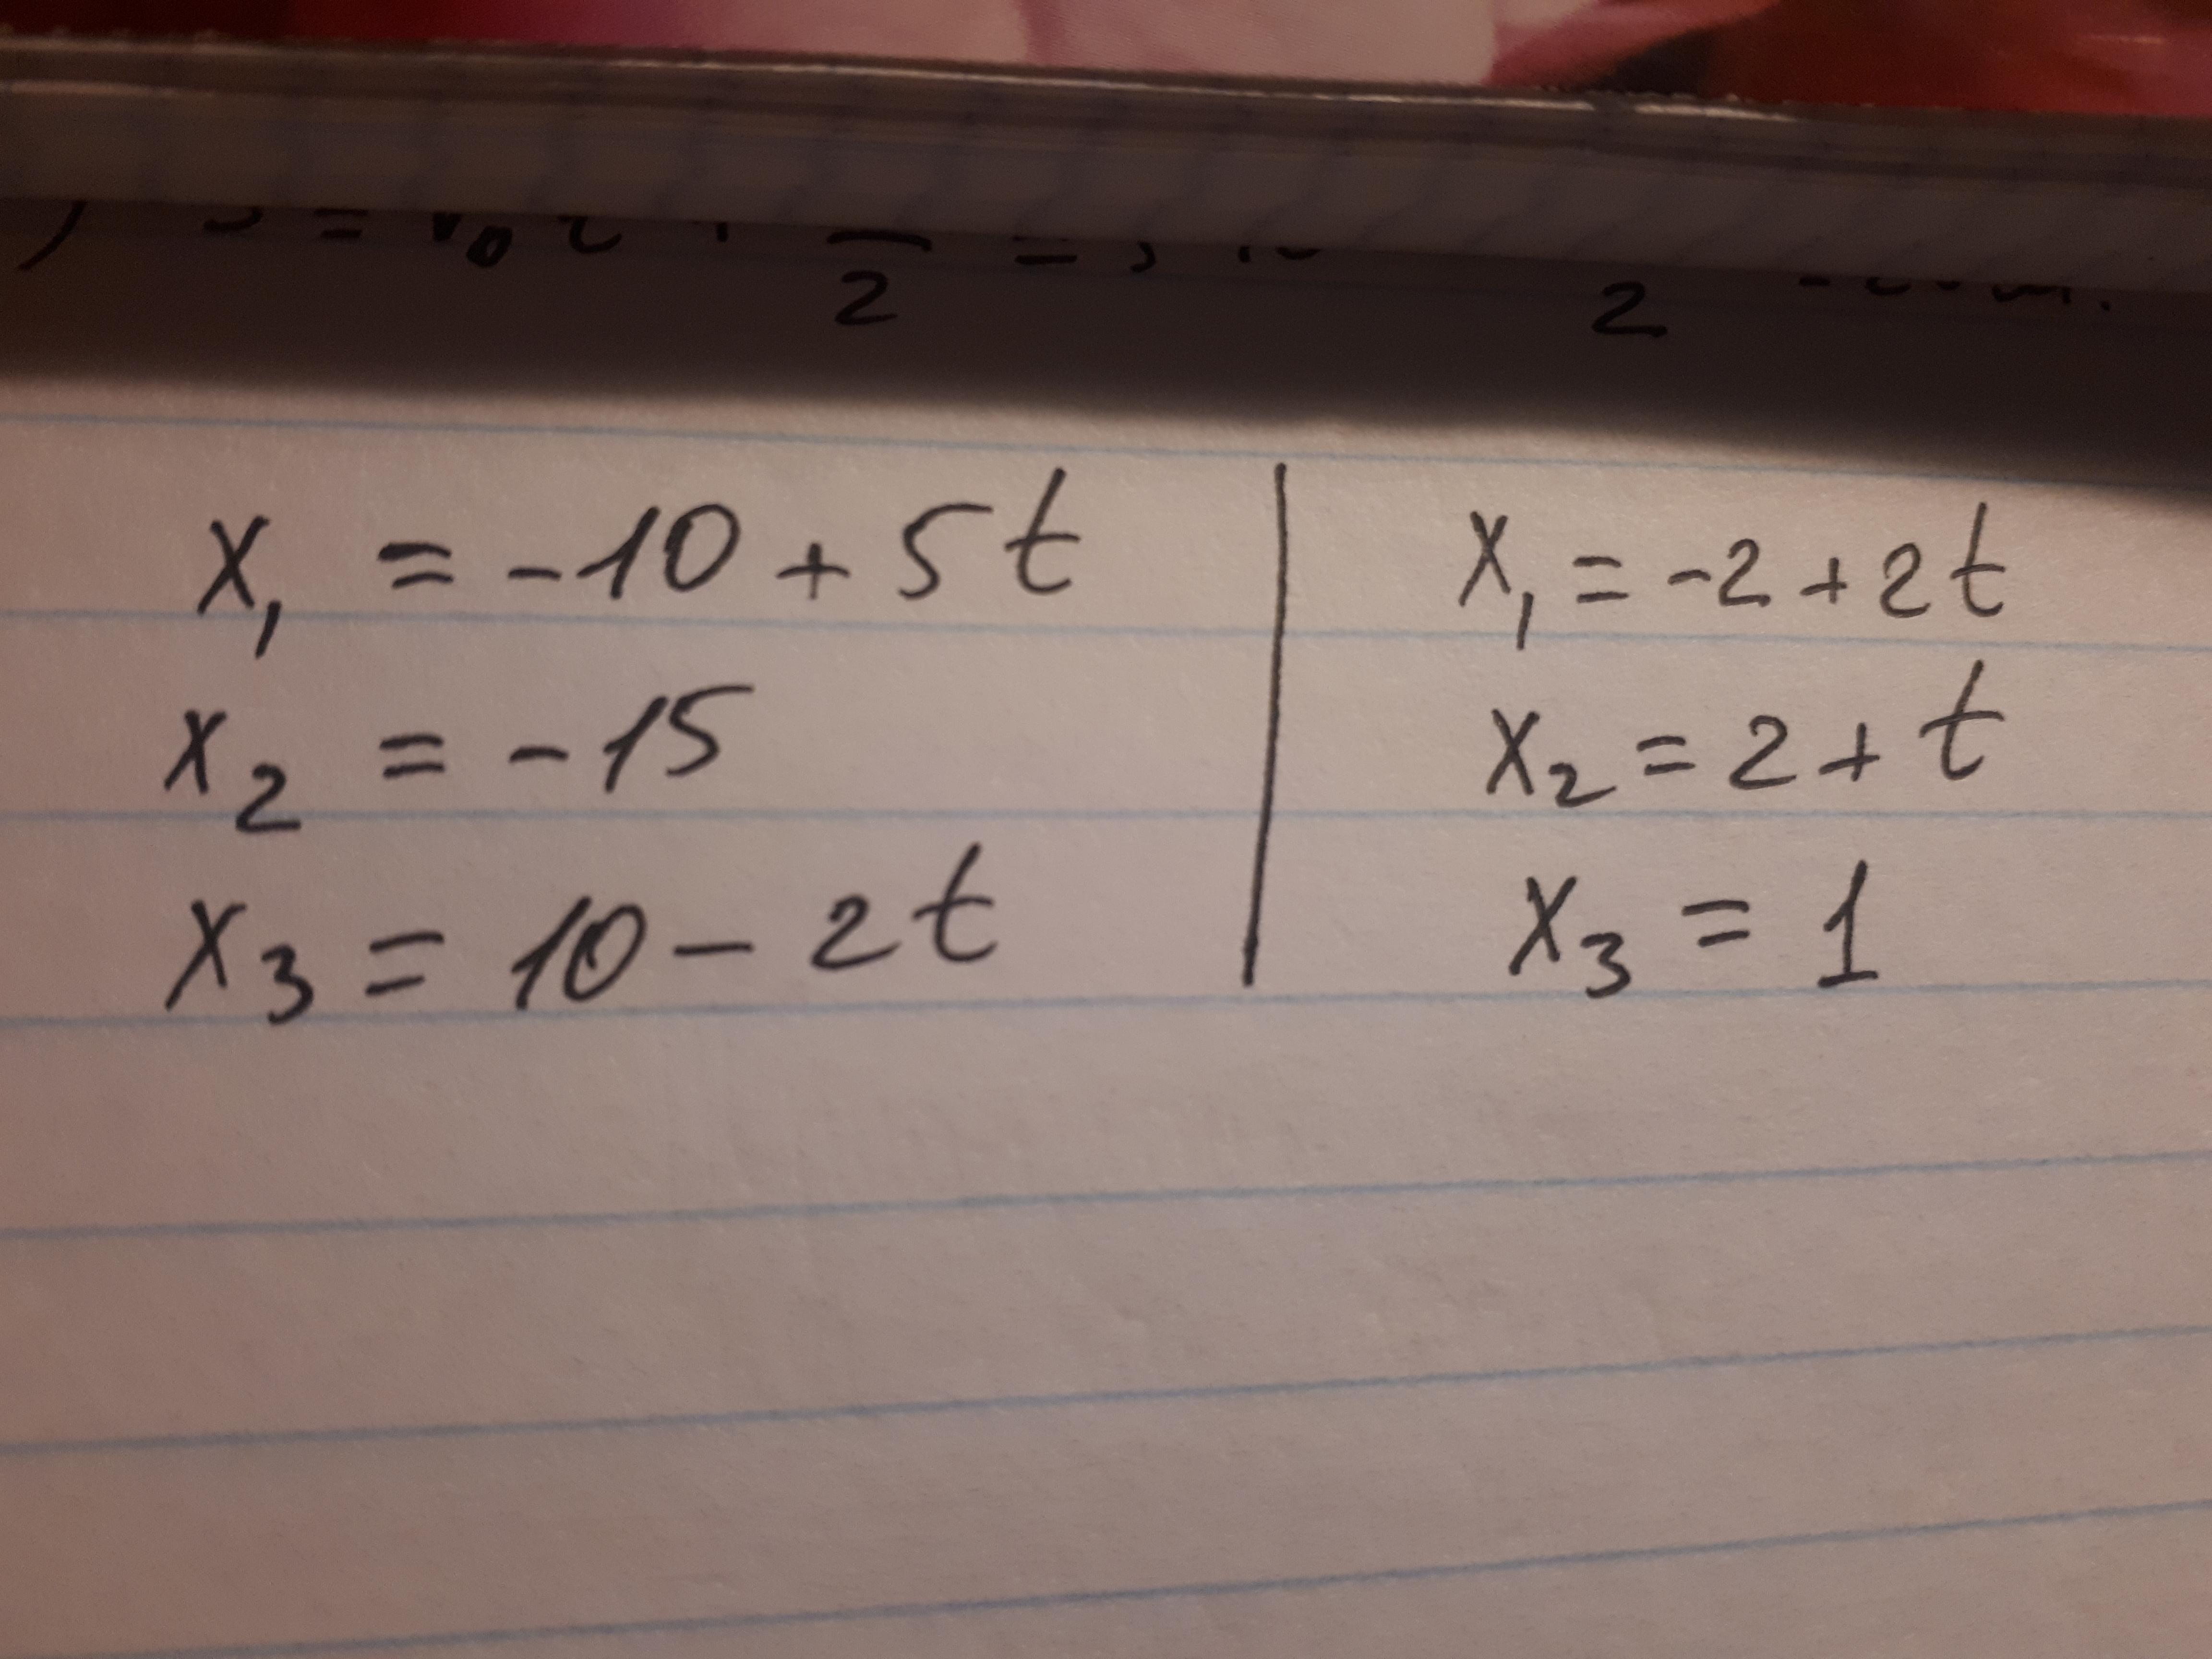 2 2
x₁ = -10 + 5t
x₂ = -15
x₃ = 10 - 2t
x₁ = -2 + 2t
x₂ = 2 + t
x₃ = 1